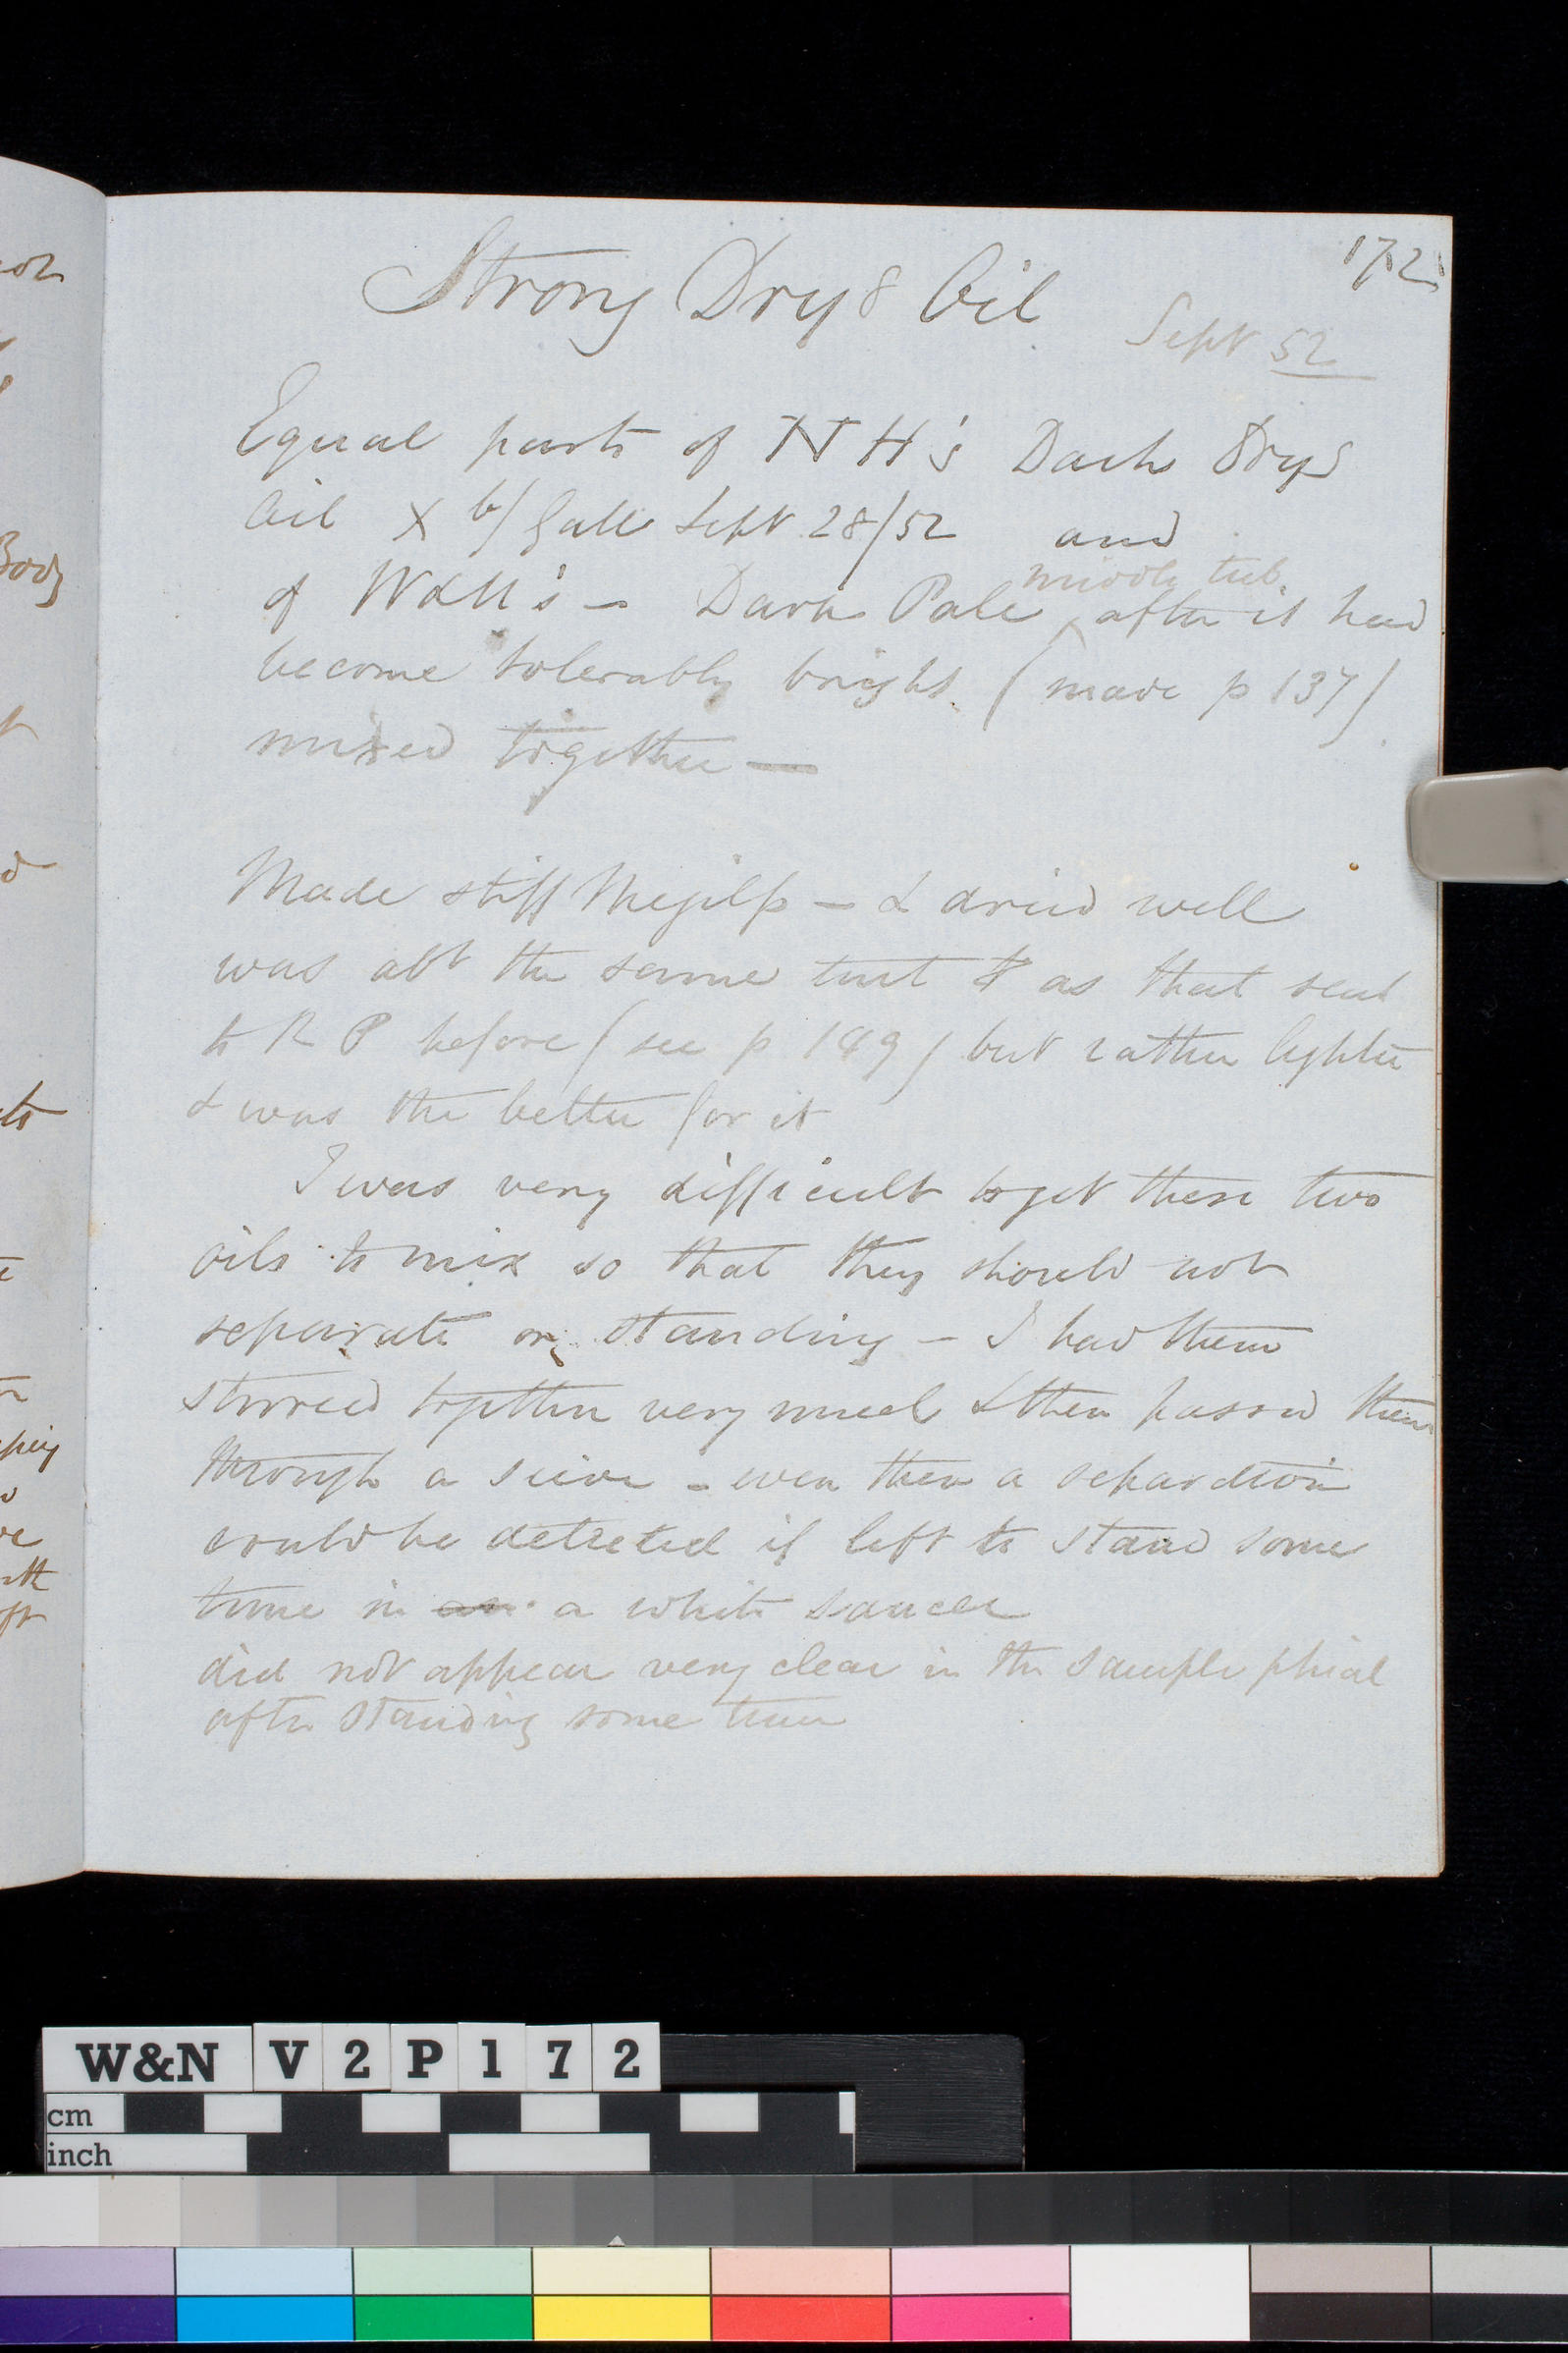 172
Strong Dryg Oil
Sept 52
Equal parts of N H's Dark Dryg
Oil X 6/ Gall Sept 28/52 and
of W&N's - Dark Pale middle tub after it had
become tolerably bright (made p 137)
mixed together —
Made stiff Megilp - & dried well
was abt the same tint as that sent
to R P before (see p 149) but rather lighter
& was the better for it
I was very difficult to get these two
oils to mix so that they should not
separate on standing - I had them
stirred together very much & then passed them
through a sieve - even then a separation
could be detected if left to stand some
time in an a white saucer
did not appear very clear in the sample phial
after standing some time
not
Body
W&N V2P172
cm
inch